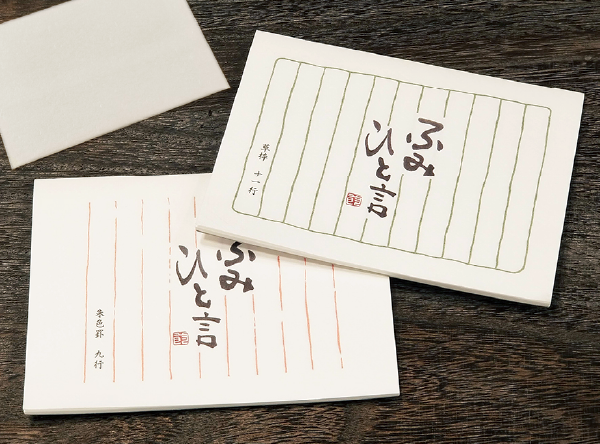 ふみ
ひと言
十一行
ふみ
ひと言
朱色罫 九行